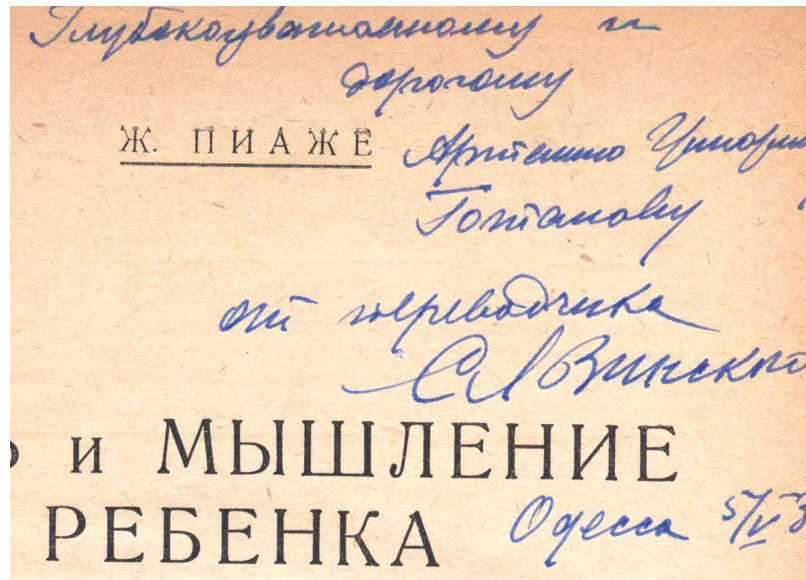 Глубокоуважаемому и
дорогому
Ж. ПИАЖЕ
Артемию Григорь
Готалову
от переводчика
Винского
и МЫШЛЕНИЕ
РЕБЕНКА
Одесса 5/V 3